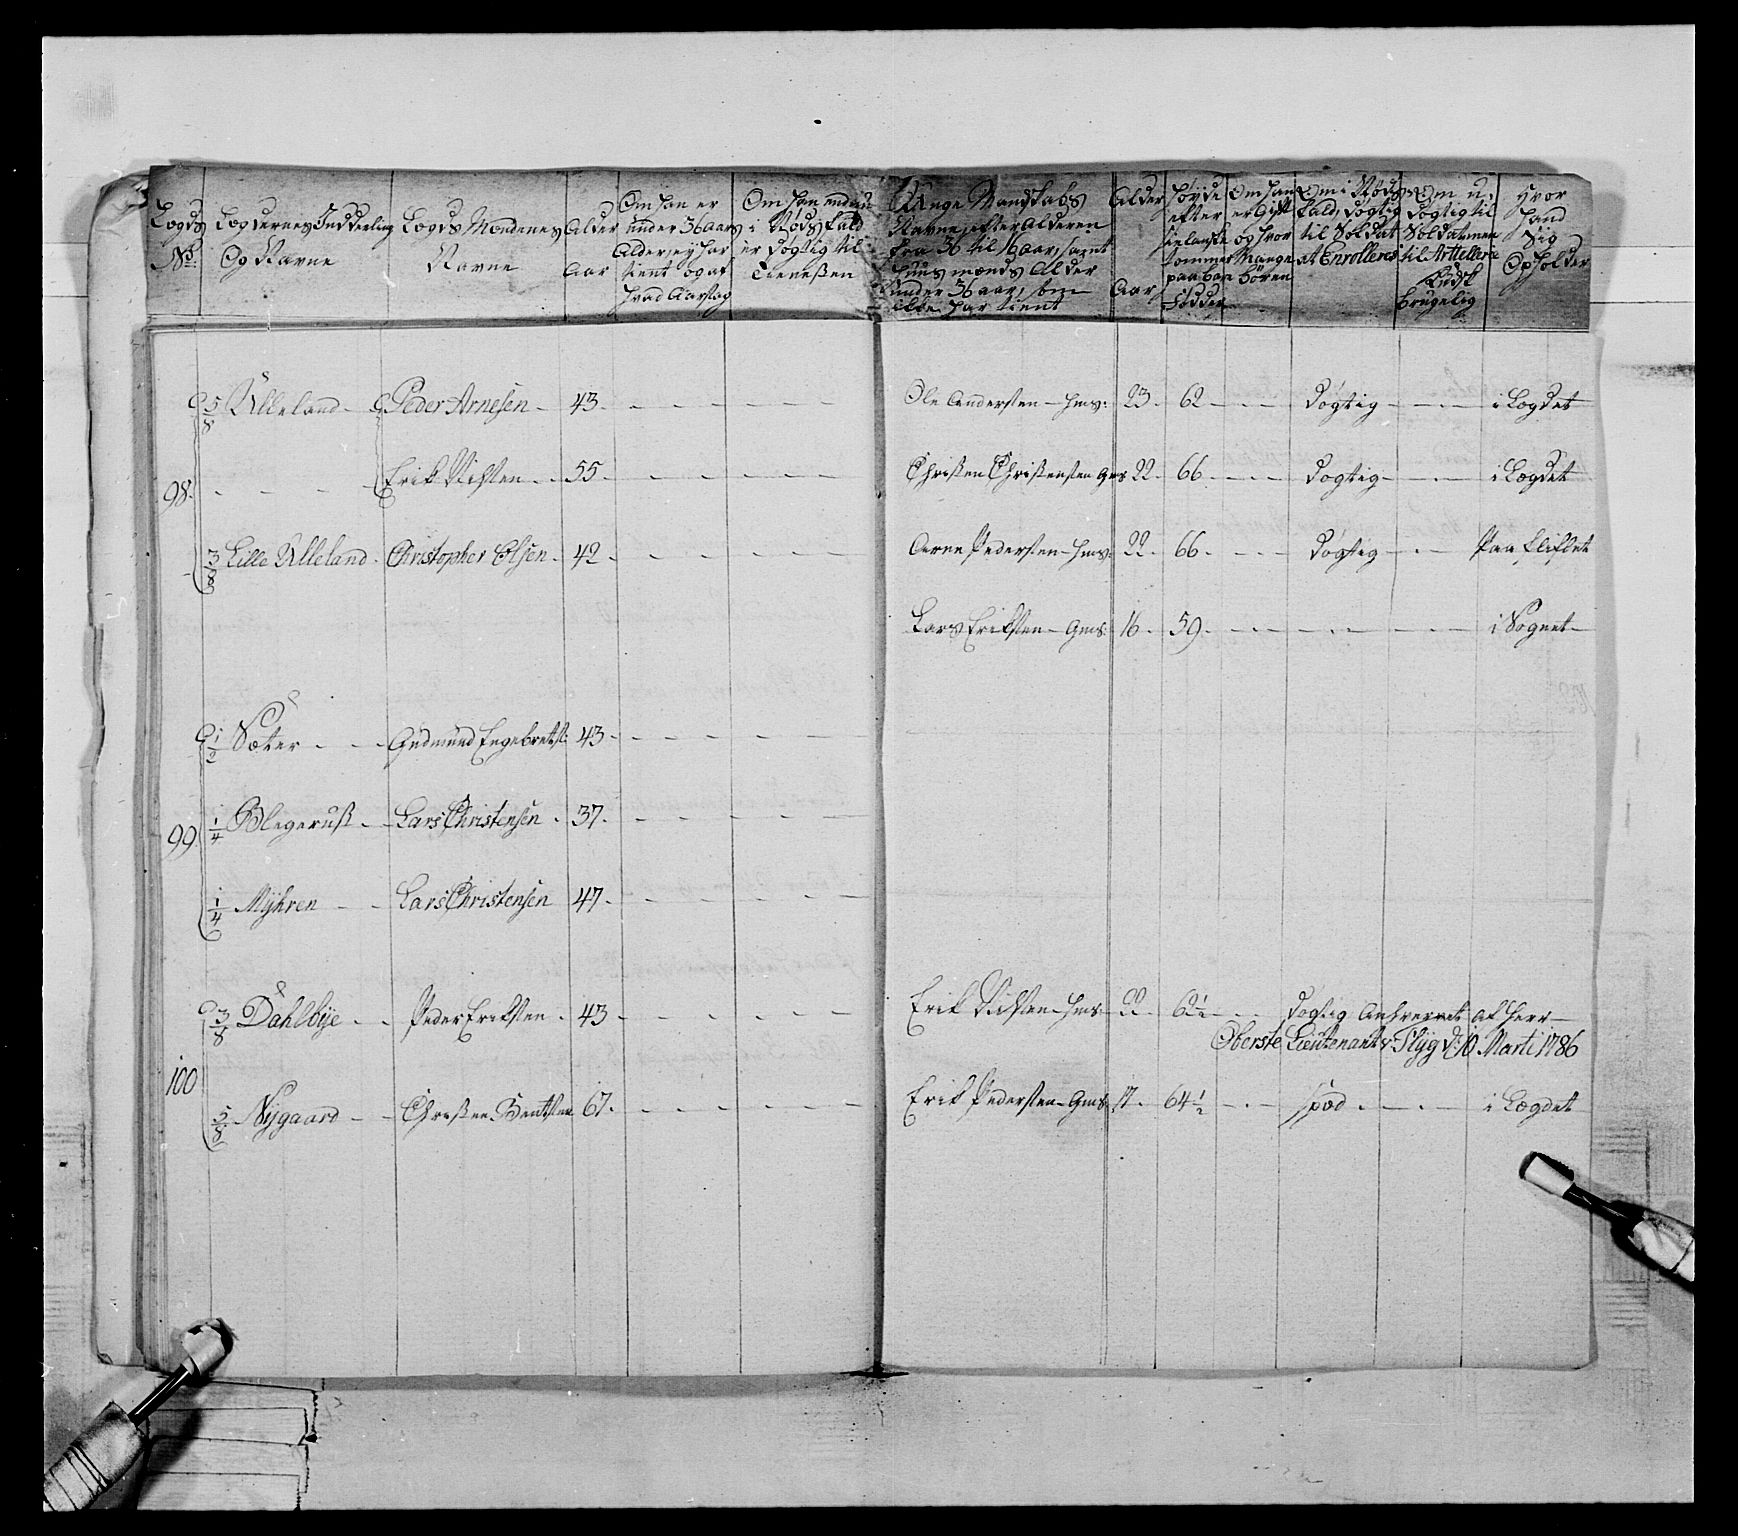 Lægds No:
Lægdernes Inddeeling Og Navne
Lægds Mændenes Navne
Alder Aar
Om han er under 36 aars Alder, ey har tient og af hvad Aarsag
Om han endnu i Nøds fald er dygtig til Tienesten
Unge Mandskabs Navne, efter Alderen fra 36 til 16 aar, samt Huusmænds Alder Under 36 aar, som ikke har tient
Alder Aar
Høyde efter sielandske tommer paa bare Fødder
Om han er Gift og hvor Mange Børen
Om i Nøds fald, dygtig til Soldat at Enrolleres
Om u-dygtig til Soldat men til Artelleri Kudsk brugelig
Hvor Hand Sig Opholder
98. 5/8 Ulleland - Peder Arnesen - 43. - - - - - Ole Andersen - hms: 23. 62 - - - Døgtig - - - i Lægdet
- - - Erik Nilsen - - 55 - - - - - Christen Christensen Gms 22. 66. - - - Døgtig - - - i Lægdet
3/8 Lille Ulleland - Christopher Olsen - 42 - - - - - Arne Pedersen - hms: 22. 66. - - - Døgtig - - -
Lars Eriksen - Gms: 16. 59. - - - - - - i Sognet -
99. 1/2 Sæter - - - Gudmund Engebretsl: 43 - - - - -
1/4 Blegerust - - Lars Christensen - 37. - - - - -
1/4 Myhren - - Lars Christensen 47. - - - - -
100 3/8 Dahlbye - - Peder Eriksen - 43 - - - - - Erik Nilsen - hms: 22. 62 1/2 - - Døgtig Anhvervet af Herr -
Oberste Lieutenant v: Flyg d: 10 Marti 1786
5/8 Nygaard - - Christen Bentsen 67. - - - - - Erik Pedersen - Gms: 17. 64 1/2 - - - spæd - - - i Lægdet